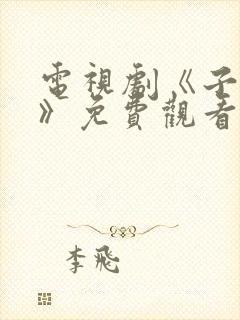 電視劇《子
》免費觀看
李飛